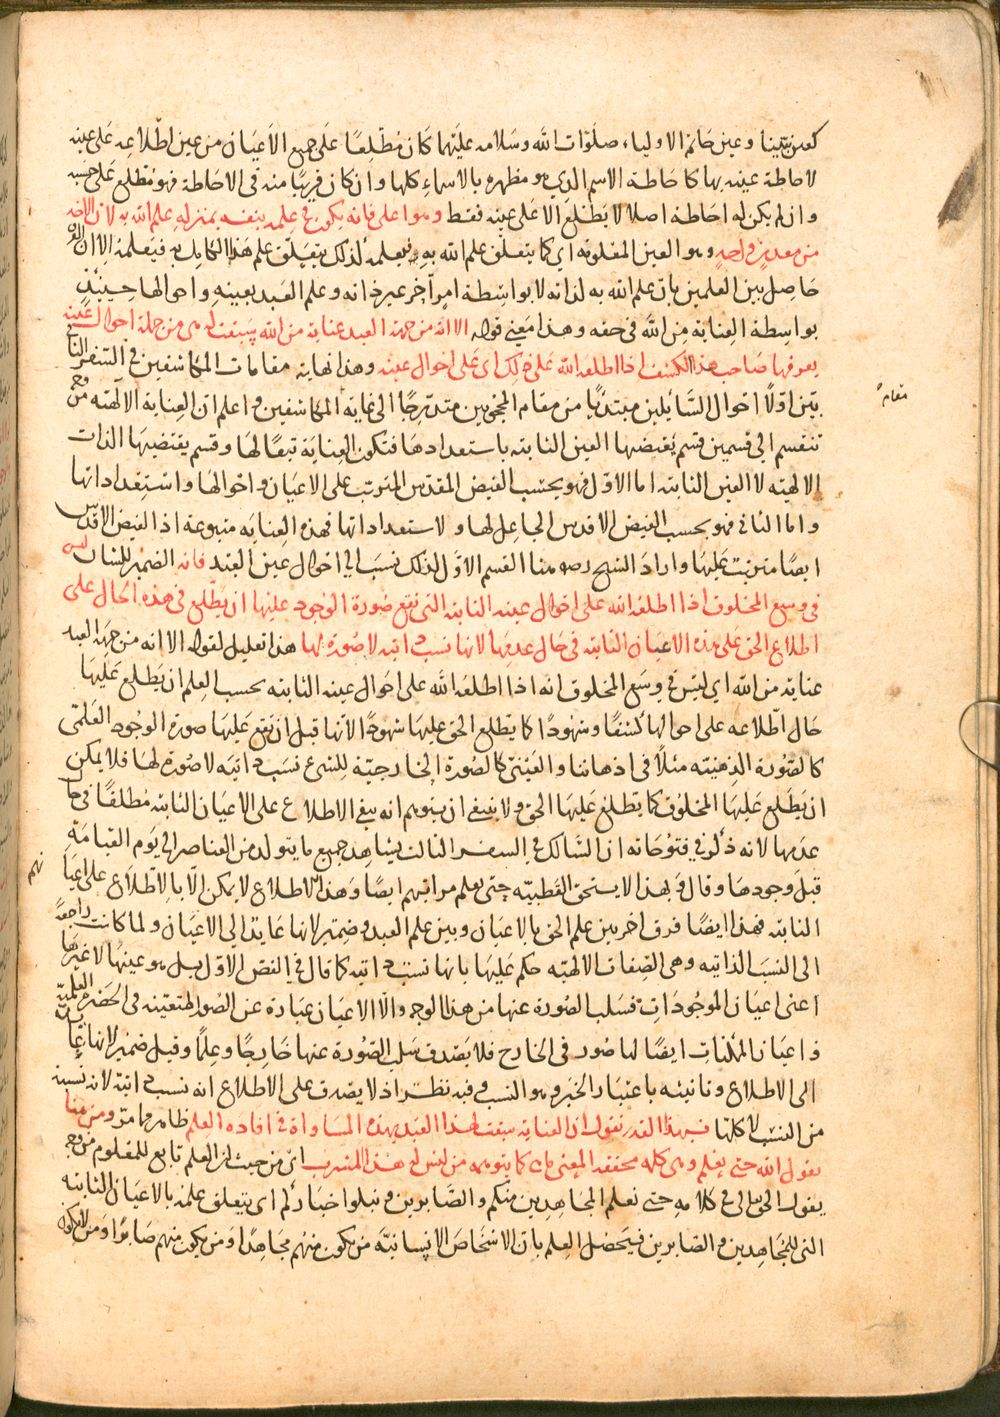 كعين نبيّنا وعين خاتم الاولياء صلوات الله وسلامه عليهما كان مطّلعًا على جميع الاعيان من عين اطّلاعه على عينه
لاحاطة عينه بها كاحاطة الاسم الذي هو مظهره بالاسماء كلها وان كان قريبًا منه في الاحاطة فهو مطّلع على حسبه
وان لم يكن له احاطة اصلا لا يطّلع الا على عينه فقط وهو اعلى فانه يكون في علمه بنفسه بمنزلة علم الله به لان الاخذ
من معدن واحد وهو العين المعلومة اي كما يتعلق علم الله به فيعلمه لذلك يتعلق علم هذا الكامل به فيعلمه الا ان الفرق
حاصل بين العلمين بان علم الله به لذاته لا بواسطة امر آخر غير ذاته وعلم العبد بعينه واحوالها حينئذ
بواسطة العناية من الله في حقه وهذا معنى قوله الا انه من جهة العبد عناية من الله سبقت له هي من جملة احوال عينه
يعرفها صاحب هذا الكشف اذا اطلعه الله على ذلك اى على احوال عينه وهذا نهاية مقامات المكاشفين في السفر الثاني
بيّن اوّلًا احوال السّائلين مبتدئًا من مقام المحجوبين متدرّجًا الى غاية المكاشفين واعلم ان العناية الالهية من وجه
تنقسم الى قسمين قسم يقتضيها العين الثابتة باستعدادها فتكون العناية تبعًا لها وقسم يقتضيها الذات
الالهية لا العين الثابتة اما الاوّل فهو بحسب الفيض المقدّس المترتب على الاعيان واحوالها واستعداداتها
واما الثاني فهو بحسب الفيض الاقدس الجاعل لها ولاستعداداتها فهذه العناية متبوعة اذ الفيض الاقدس
ايضًا مترتب عليها واراد الشيخ رضه هنا القسم الاوّل لذلك نسب الى احوال عين العبد فانه الضمير للشان ليس
في وسع المخلوق اذا اطلعه الله على احوال عينه الثابتة التي تقع صورة الوجود عليها ان يطّلع في هذه الحال على
اطلاع الحق على هذه الاعيان الثابتة في حال عدمها لانها نسب ذاتية لا صورة لها هذا تعليل لقوله الا انه من جهة العبد
عناية من الله اي ليس في وسع المخلوق انه اذا اطلعه الله على احوال عينه الثابتة بحسب العلم ان يطّلع عليها
حال اطّلاعه على احوالها كشفًا وشهودًا كما يطّلع الحق عليها شهودًا لانها قبل ان تقع عليها صورة الوجود العلمي
كالصورة الذهنية مثلًا في اذهاننا والعيني كالصورة الخارجية للشيء نسب ذاتية لا صورة لها فلا يمكن
ان يطّلع عليها المخلوق كما يطّلع عليها الحق ولا ينبغي ان يتوهم انه ينفي الاطلاع على الاعيان الثابتة مطلقًا في حال
عدمها لانه ذكر في فتوحاته ان السّالك في السفر الثالث يشاهد جميع ما يتولد من العناصر الى يوم القيامة
قبل وجودها وقال وبهذا لا يستحق القطبيّة حتى يعلم مراتبهم ايضًا وهذا الاطلاع لا يمكن الّا بالاطّلاع على اعيانهم
الثابتة فهذا ايضًا فرق آخر بين علم الحق بالاعيان وبين علم العبد وضمير لانها عايد الى الاعيان ولما كانت راجعة
الى النسب الذاتية وهي الصفات الالهية حكم عليها بانها نسب ذاتية كما قال في الفص الاوّل بل هو عينها لا غيرها
اعنى اعيان الموجودات فسلب الصورة عنها من هذا الوجه والّا الاعيان عبارة عن الصور المتعينة في الحضرة العلميّة
واعيان الممكنات ايضًا لها صور في الخارج فلا يصدق سلب الصورة عنها خارجًا وعلمًا وقيل ضمير لانها عائد
الى الاطلاع وتانيثه باعتبار الخبر وهو النسب وفيه نظر اذ لا يصدق على الاطلاع انه نسب ذاتية لانه نسبة
من النسب لا كلها فبهذا القدر نقول ان العناية سبقت لهذا العبد بهذه المساواة في افادة العلم ظاهر مما مرّ ومن هنا
يقول الله حتى نعلم وهي كلمة محققة المعنى ما هي كما يتوهمه من ليس له هذا المشرب اى من حيث ان العلم تابع للمعلوم من وجه
يقول الحق تعالى في كلامه حتى نعلم المجاهدين منكم والصّابرين ونبلوا اخباركم اى يتعلق علمنا بالاعيان الثابتة
التي للمجاهدين والصابرين فيحصل العلم بان الاشخاص الانسانيّة من يكون منهم مجاهدًا ومن يكون منهم صابرًا ومن لا يكون
مقام